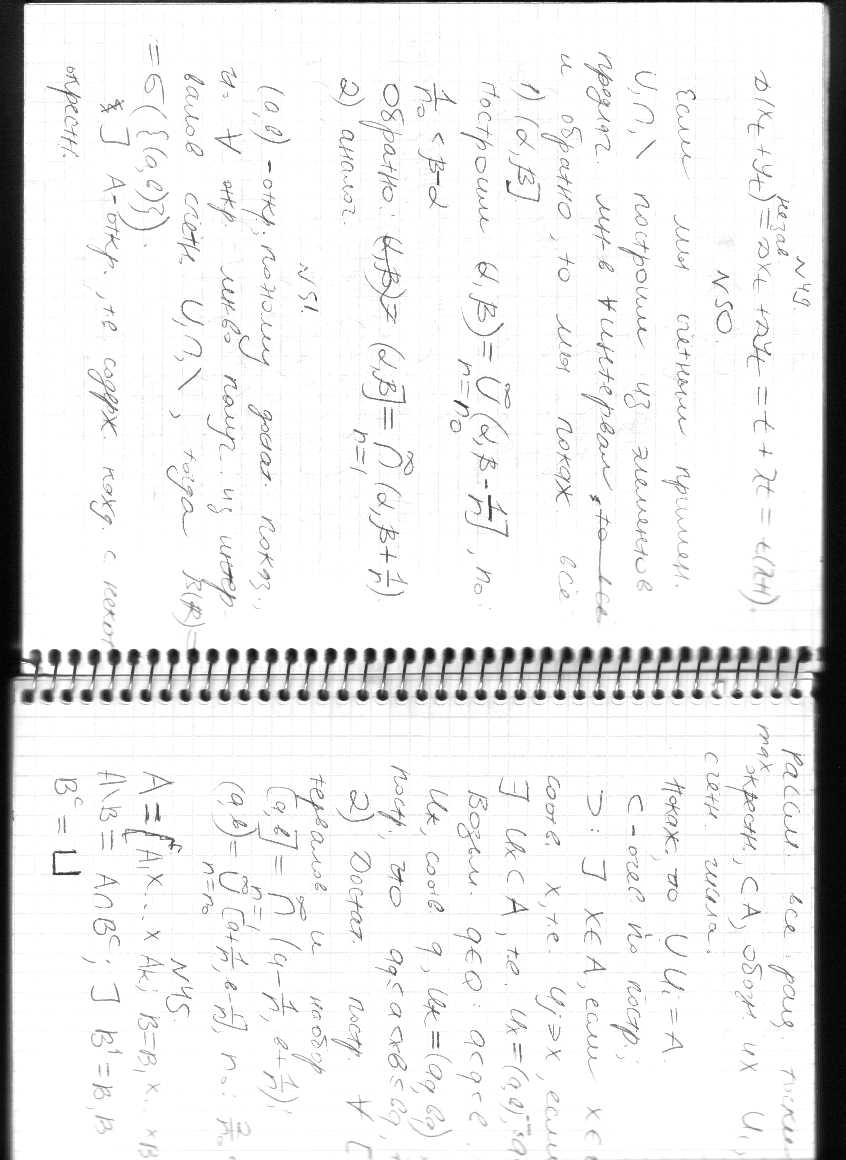 N49.
D(X_t + Y_t) = DX_t + DY_t = t + λt = t(λ+1).
незав
N50.
Если мы счетным примен.
∪,∩,\ построим из элементов
предлаг. мн-в ∀ интервал,
и обратно, то мы покаж. все
1) (α,β]
Построим (α,β) = ∪_{n=n₀}^∞ (α,β-1/n], n₀:
1/n₀ < β-α
Обратно: (α,β] = ∩_{n=1}^∞ (α,β+1/n).
2) аналог.
N51.
(a,b) - откр. поэтому достат. показ.,
ч. ∀ откр. мн-во получ. из интер-
валов счетн. ∪,∩,\, тогда B(R) =
= σ({(a,b)}).
] A-откр., т.е. содерж. кажд. с некот
окрестн.
Рассм. все рац. точки
max окрестн. ⊂A, обозн. их U₁,
счетн. числа.
Покаж., что ∪U_i = A.
⊂ - очев. по постр.;
⊃: ] x∈A, если x∈
соотв. x, т.е. U_j∋x, если
∃ U_x⊂A, т.е. U_x=(a,b),
Возьм. q∈Q: a<q<b.
U_k, соотв. q, U_k=(a_q,b_q)
постр., что a_q≤a<x<b≤b_q,
2) Достат. постр. ∀ [
тервалов и наобор
[a,b] = ∩_{n=1}^∞ (a-1/n, b+1/n);
(a,b) = ∪_{n=n₀}^∞ [a+1/n, b-1/n], n₀: 2/n₀
N45.
A = A₁×...×A_k; B=B₁×...×B
A\B = A∩B^c; ] B¹=B₁B
B^c = ⊔